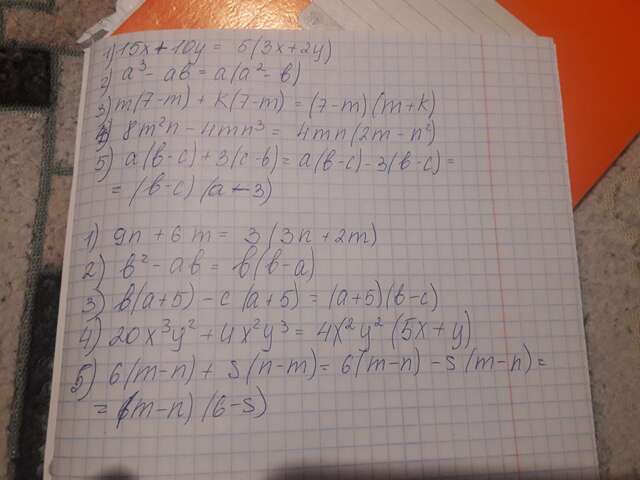 1) 15x + 10y = 5(3x + 2y)
2) a³ - ab = a(a² - b)
3) m(7-m) + k(7-m) = (7-m)(m+k)
4) 8m²n - 4mn³ = 4mn(2m - n²)
5) a(b-c) + 3(c-b) = a(b-c) - 3(b-c) =
= (b-c)(a-3)
1) 9n + 6m = 3(3n + 2m)
2) b² - ab = b(b-a)
3) b(a+5) - c(a+5) = (a+5)(b-c)
4) 20x³y² + 4x²y³ = 4x²y²(5x + y)
5) 6(m-n) + s(n-m) = 6(m-n) - s(m-n) =
= (m-n)(6-s)